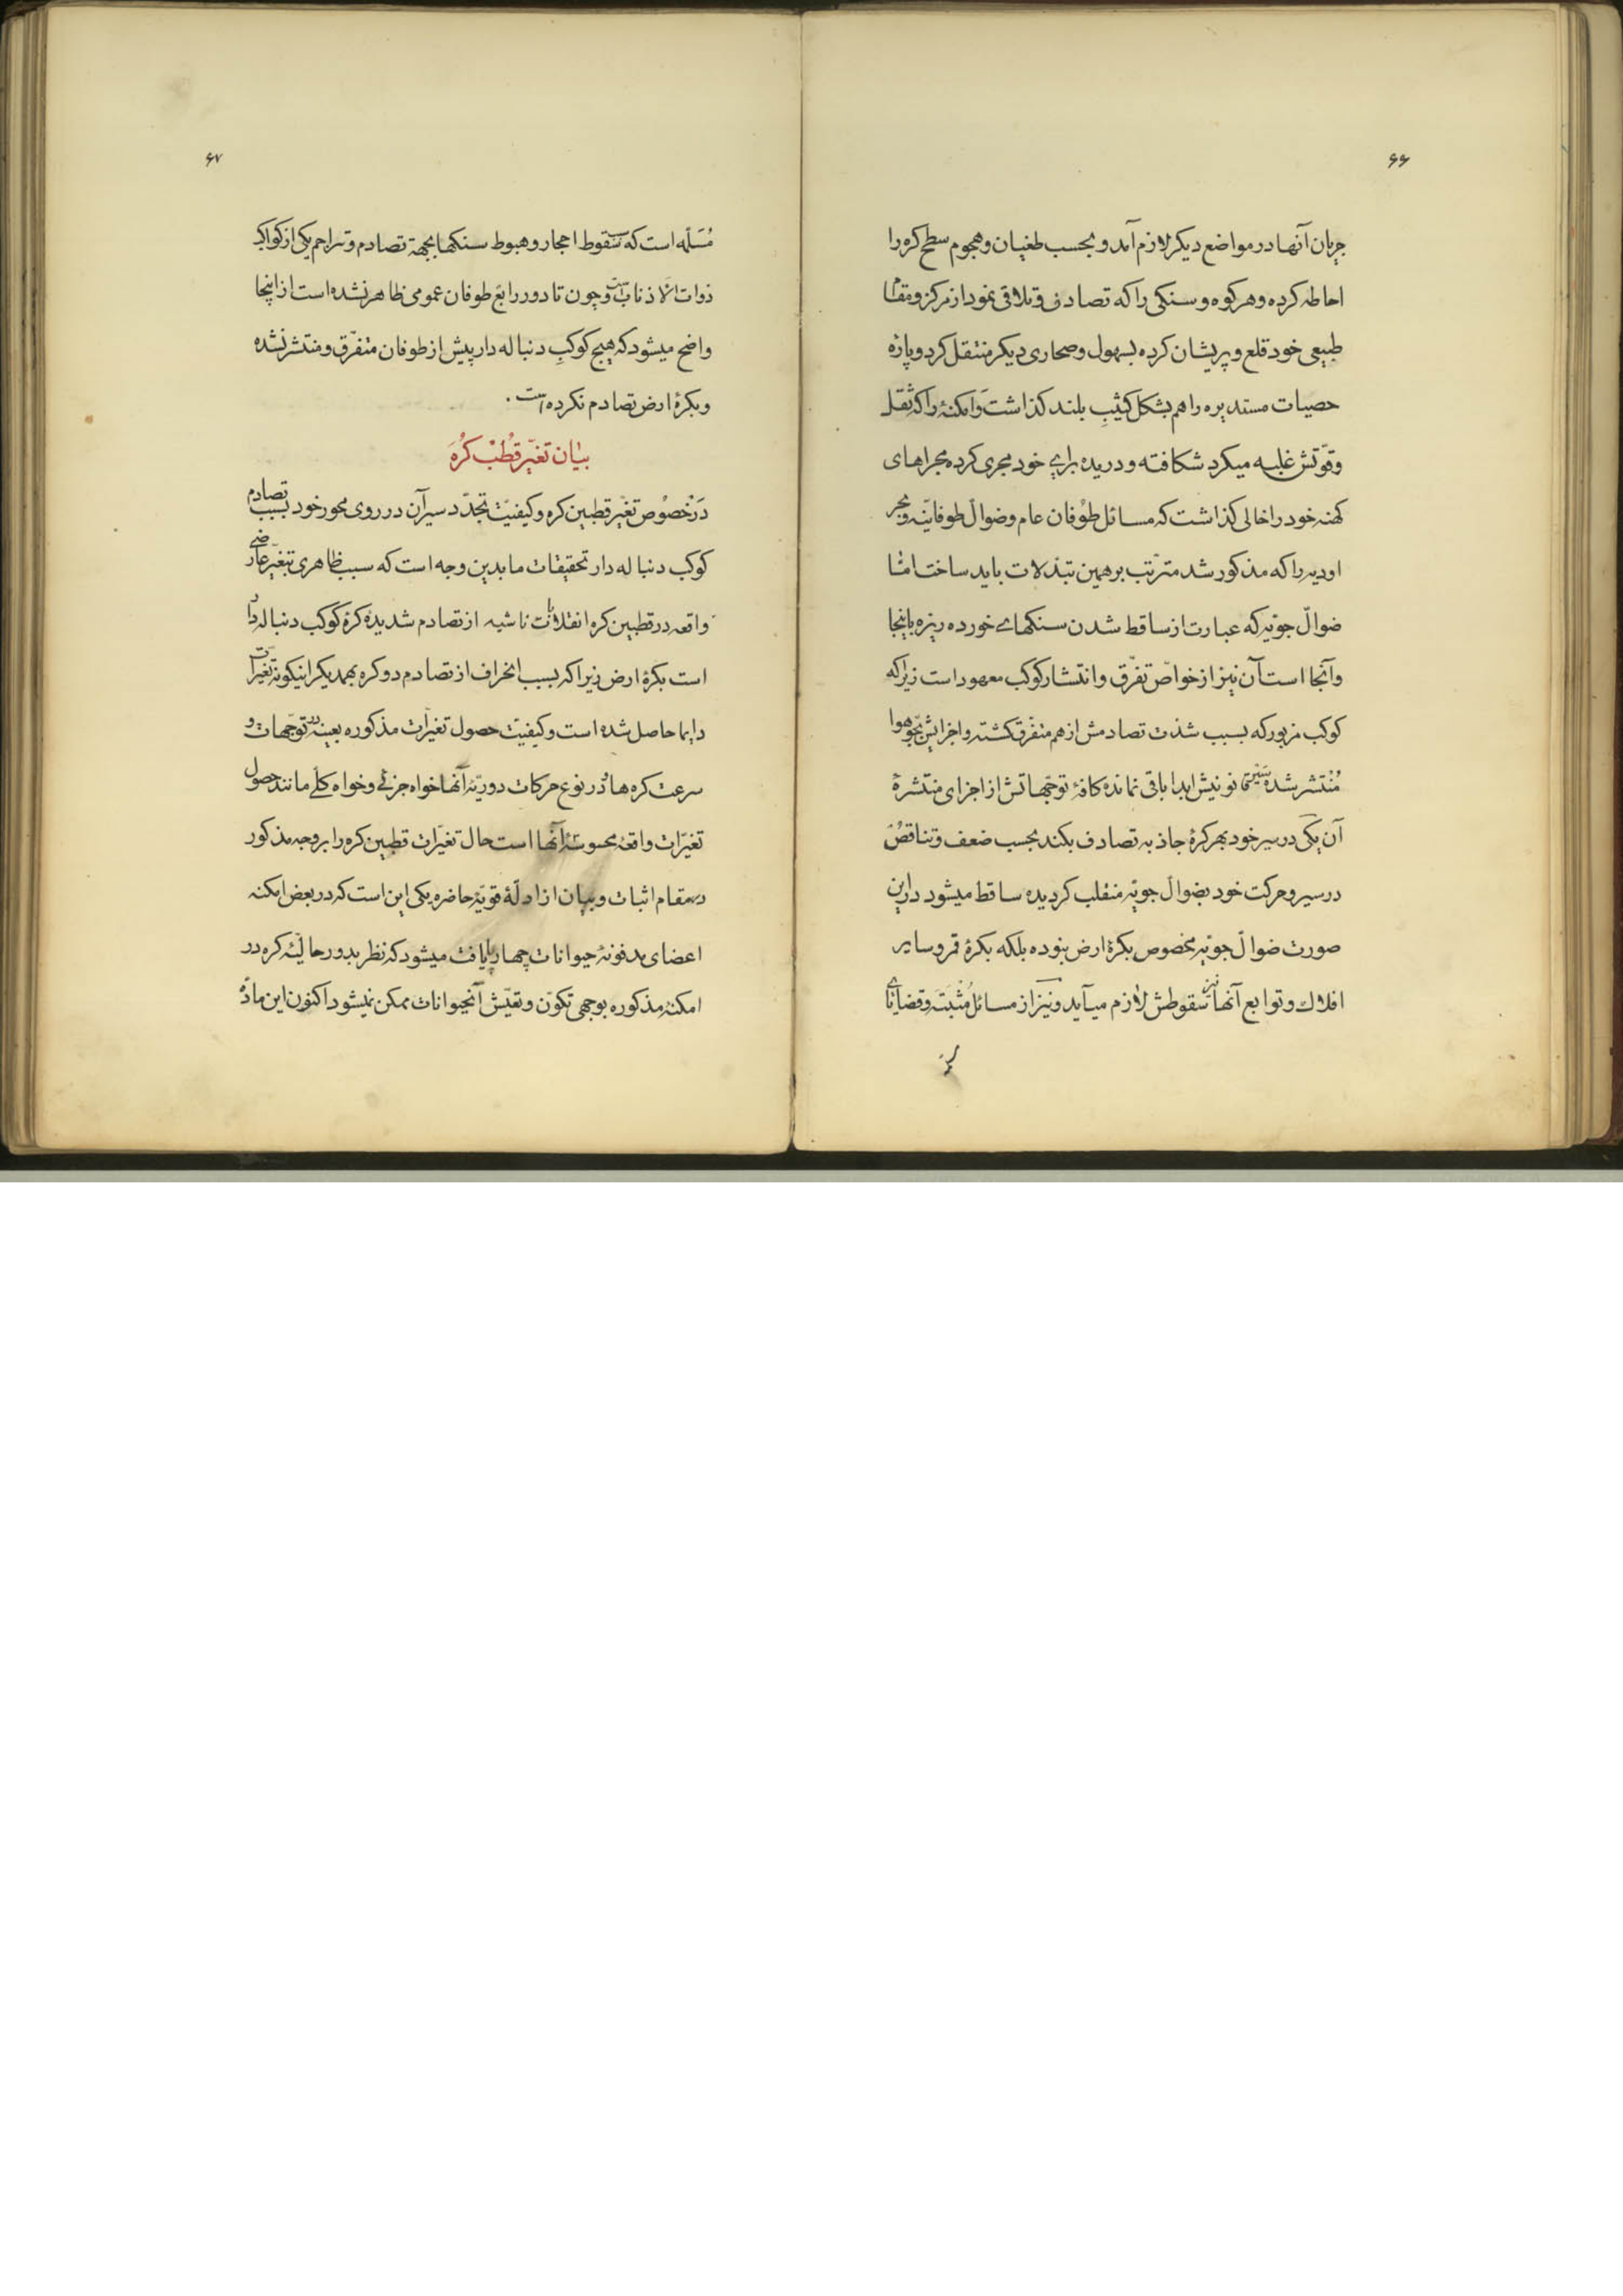 ۶۶
جریان آنها در مواضع دیکر لازم آمد و بحسب طغیان و هجوم سطح کره را
احاطه کرده و هر کوه و سنکی را که تصادف و تلاقی نمود از مرکز و مقام
طبیعی خود قلع و پریشان کرده بسهول و صحاری دیکر منتقل کرد و پارهٔ
حصیات مستدیره را هم بشکل کثیبِ بلند کذاشت وَ امکنهٔ را که ثقل
و قوّتش غلبه میکرد شکافته و دریده برای خود مجری کرده مجراهای
کهنه خود را خالی کذاشت که مسائل طوُفان عام و ضوالّ طوفانیّه و بحر
اودیه را که مذکور شد مترتّب بر همین تبدّلات باید ساخت امّا
ضوالّ جوّیه که عبارت از ساقط شدن سنکهای خورده ریزه باینجا
و آنجا است آن نیز از خواصّ تفرّق و انتشار کوکب معهود است زیرا که
کوکب مزبور که بسبب شدّت تصادمش از هم متفرّق کشته و اجزائش بجوّ هوا
مُنْتشر شده نونیش ابدا باقی نمانده کافهٔ توجّهاتش از اجزای منتشرهٔ
آن یکی در سیر خود بهر کرهٔ جاذبه تصادف بکند بحسب ضعف و تناقصُ
در سیر و حرکت خود بضوالّ جوّیه منقلب کردیده ساقط میشود در این
صورت ضوالّ جوّیه مخصوص بکرهٔ ارض نبوده بلکه بکرهٔ قمر و سایر
افلاك و توابع آنها نیز سقوطش لازم میآید و نیز از مسائل مُثْبَتَه و قضایای
۶۷
مُسَلّمه است که سقوط احجار و هبوط سنکها بجهة تصادم و تزاحم یکی از کواکب
ذوات الاذناب است و چون تا دور رابع طوفان عمومی ظاهر نشده است از اینجا
واضح میشود که هیچ کوکبِ دنباله دار پیش از طوفان متفرّق و منتشر نشده
و بکرهٔ ارض تصادم نکرده است .
بیٰان تغیّر قُطْبْ کُرَه
دَرْخصوُص تغیّر قطبین کره و کیفیّت تجدّد سیر آن در روی محور خود بسبب تصادم
کوکب دنباله دار تحقیقات ما بدین وجه است که سبب ظاهری تبغیّر عارضی
واقعه در قطبین کره انقلابات ناشیه از تصادم شدیدهٔ کرهٔ کوکب دنباله دار
است بکرهٔ ارض زیرا که بسبب انحراف از تصادم دو کره بهمدیکر اینکونه تغیّرات
دایما حاصل شده است و کیفیّت حصول تغیّرات مذکوره بعینه در توجّهات و
سرعت کره ها در نوع حرکات دوریّهٔ آنها خواه جزئی و خواه کلّی مانند حصول
تغیّرات واقعهٔ محسوسهٔ آنها است حال تغیّرات قطبین کره را بر وجه مذکور
در مقام اثبات و بیان از ادلّهٔ قویّهٔ حاضره یکی این است که در بعض امکنه
اعضای مدفونهٔ حیوانات چهارپا یافت میشود که نظر بدور حالیّهٔ کره در
امکنهٔ مذکوره بوجهی تکوّن و تعیّش آنحیوانات ممکن نمیشود اکنون این مادّهٔ